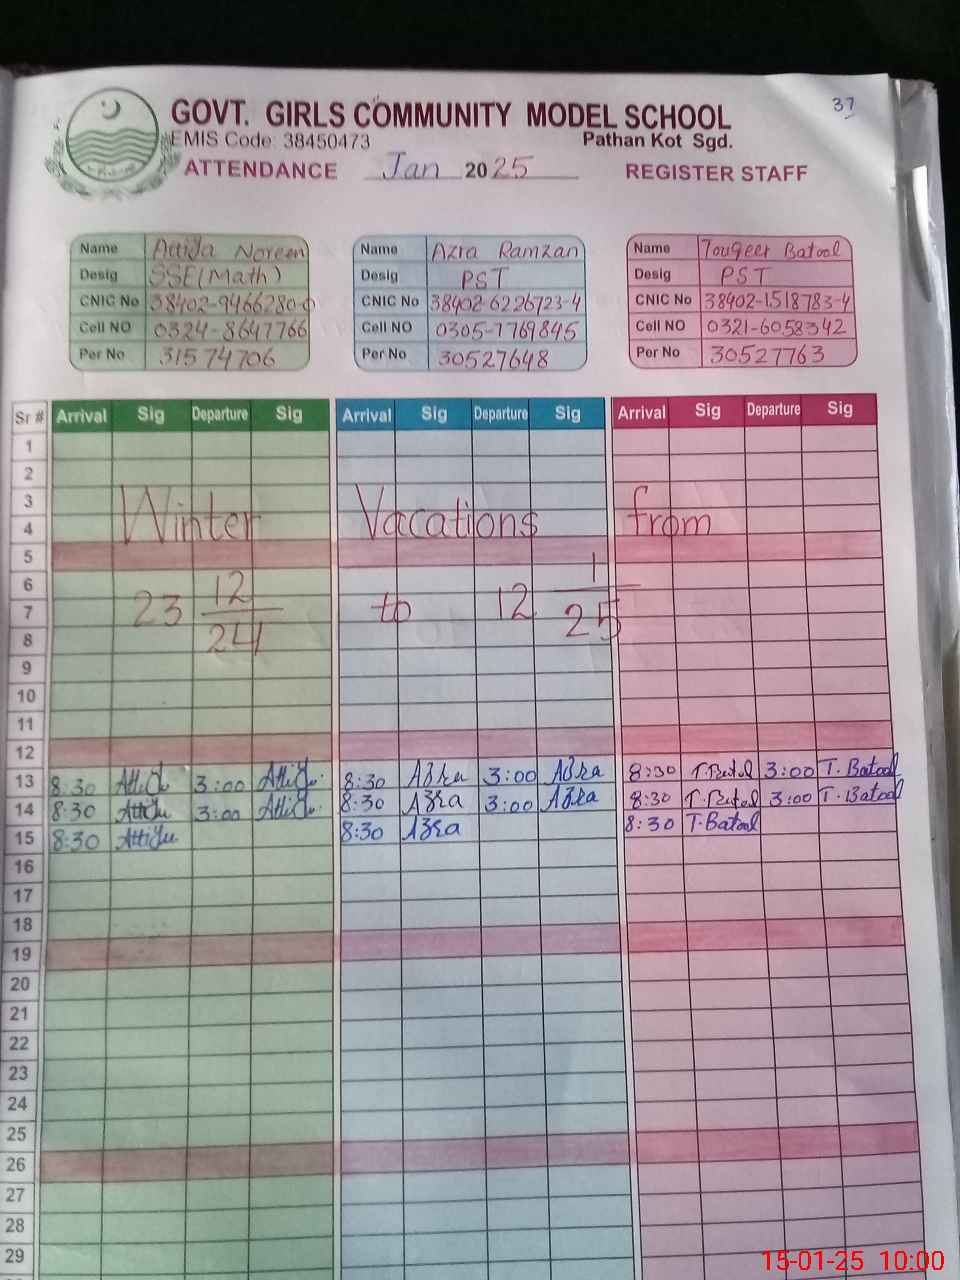 37
GOVT. GIRLS COMMUNITY MODEL SCHOOL
EMIS Code: 38450473 Pathan Kot Sgd.
ATTENDANCE Jan 2025 REGISTER STAFF
Name Attida Noreen Name Azra Ramzan Name Touqeer Batool
Desig SSE(Math) Desig PST Desig PST
CNIC No 38402-9466280-0 CNIC No 38402-6226723-4 CNIC No 38402-1518783-4
Cell NO 0324-8647766 Cell NO 0305-7769845 Cell NO 0321-6058342
Per No 31574706 Per No 30527648 Per No 30527763
Sr # Arrival Sig Departure Sig Arrival Sig Departure Sig Arrival Sig Departure Sig
1
2
3
4 Winter Vacations from
5
6
7 23 12/24 to 12 1/25
8
9
10
11
12
13 8:30 3:00 8:30 Azra 3:00 Azra 8:30 T.Batool 3:00 T.Batool
14 8:30 3:00 8:30 Azra 3:00 Azra 8:30 T.Batool 3:00 T.Batool
15 8:30 8:30 Azra 8:30 T.Batool
16
17
18
19
20
21
22
23
24
25
26
27
28
29
15-01-25 10:00